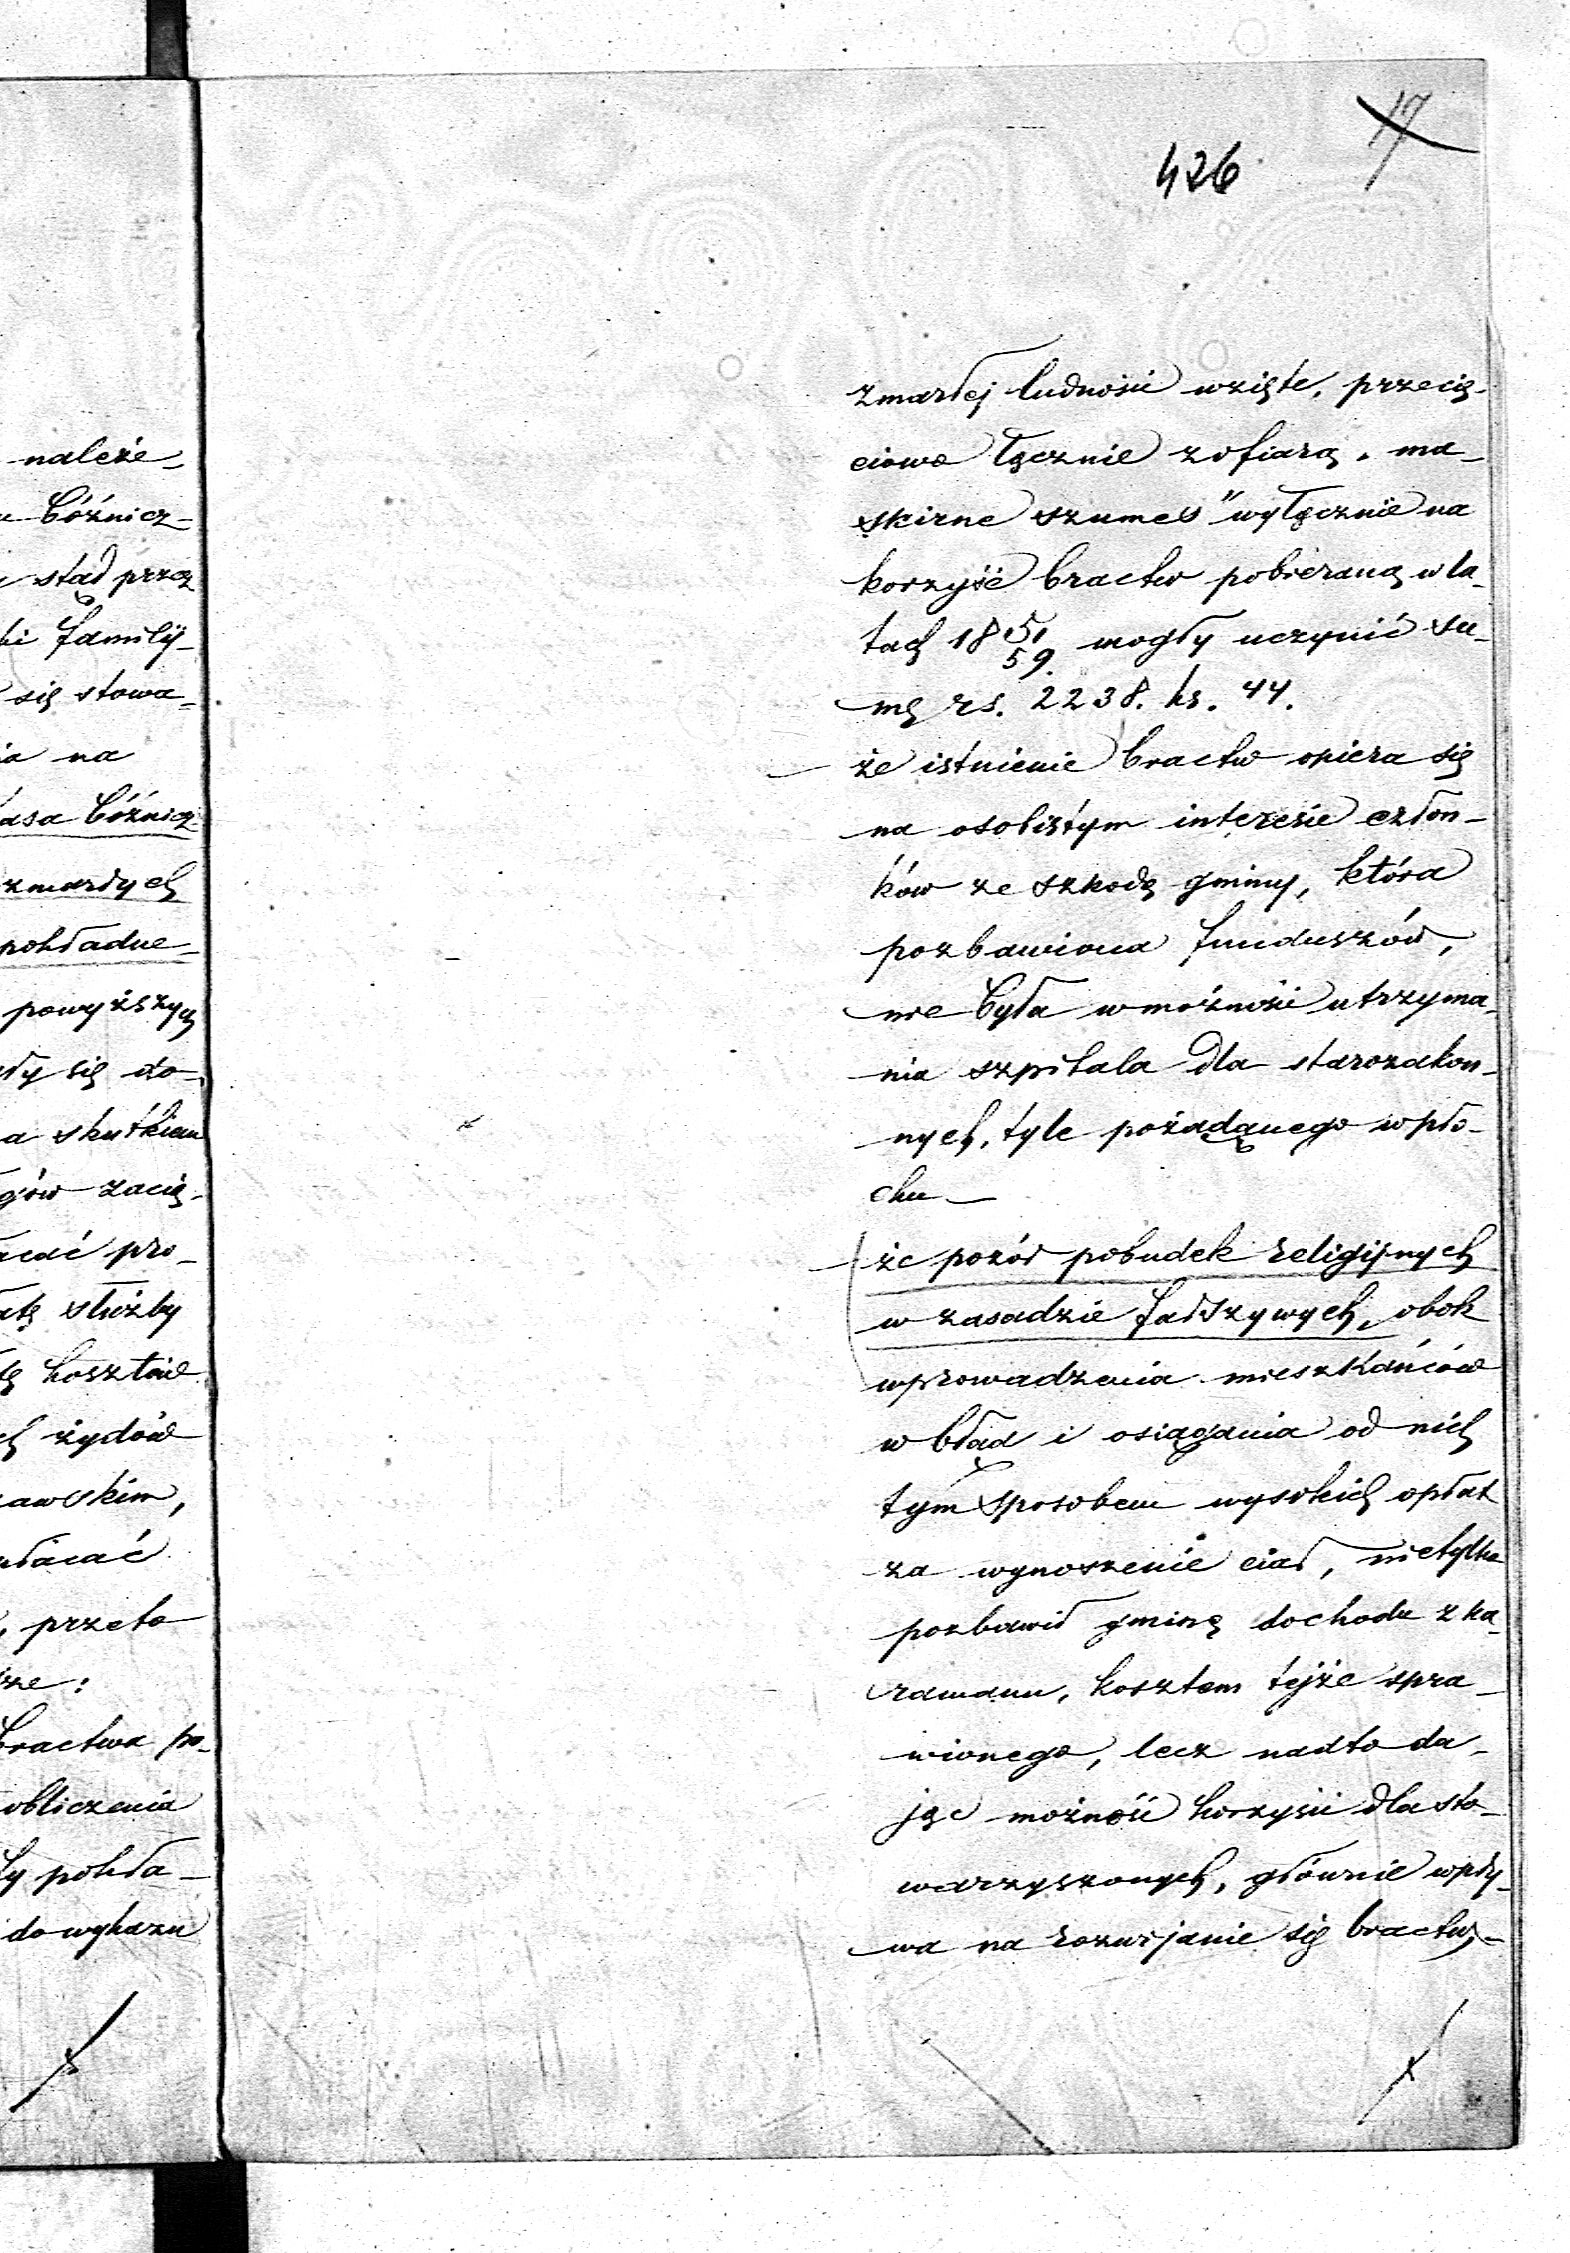 należe-
Bóźnicz-
stąd przez
familij-
się stowa-
na
Bóźnicz-
zmarłych
pokładne-
powyższych
się do-
skutkiem
zacią-
pro-
służby
kosztów
żydów
przeto
Bractwa po-
obliczenia
pokła-
do wykazu
17
426
zmarłej ludności wzięte, przecię-
ciowo łącznie z ofiarą „ma-
skirne szumes" wyłącznie na
korzyść bractw pobieraną w la-
tach 1851/59 mogły uczynić su-
mę rs. 2238. ks. 44.
— że istnienie bractw opiera się
na osobistym interesie człon-
ków ze szkodą gminy, która
pozbawiona funduszów,
nie była w możności utrzyma-
nia szpitala dla starozakon-
nych, tyle pożądanego w Pło-
cku —
— że pozór pobudek religijnych
w zasadzie fałszywych, obok
wprowadzenia mieszkańców
w błąd i osiągania od nich
tym sposobem wysokich opłat
za wynoszenie ciał, nietylko
pozbawił gminę dochodu z ka-
rawanu, kosztem tejże spra-
wionego, lecz nadto da-
jąc możność korzyści dla sto-
warzyszonych, głównie wpły-
wa na rozwijanie się bractw, -